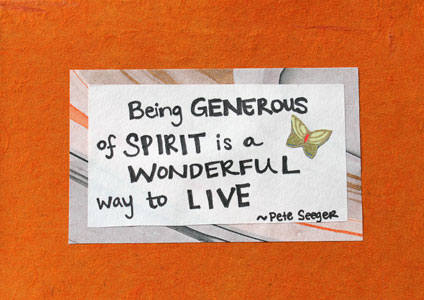 Being GENEROUS
of SPIRIT is a
WONDERFUL
way to LIVE
~Pete Seeger